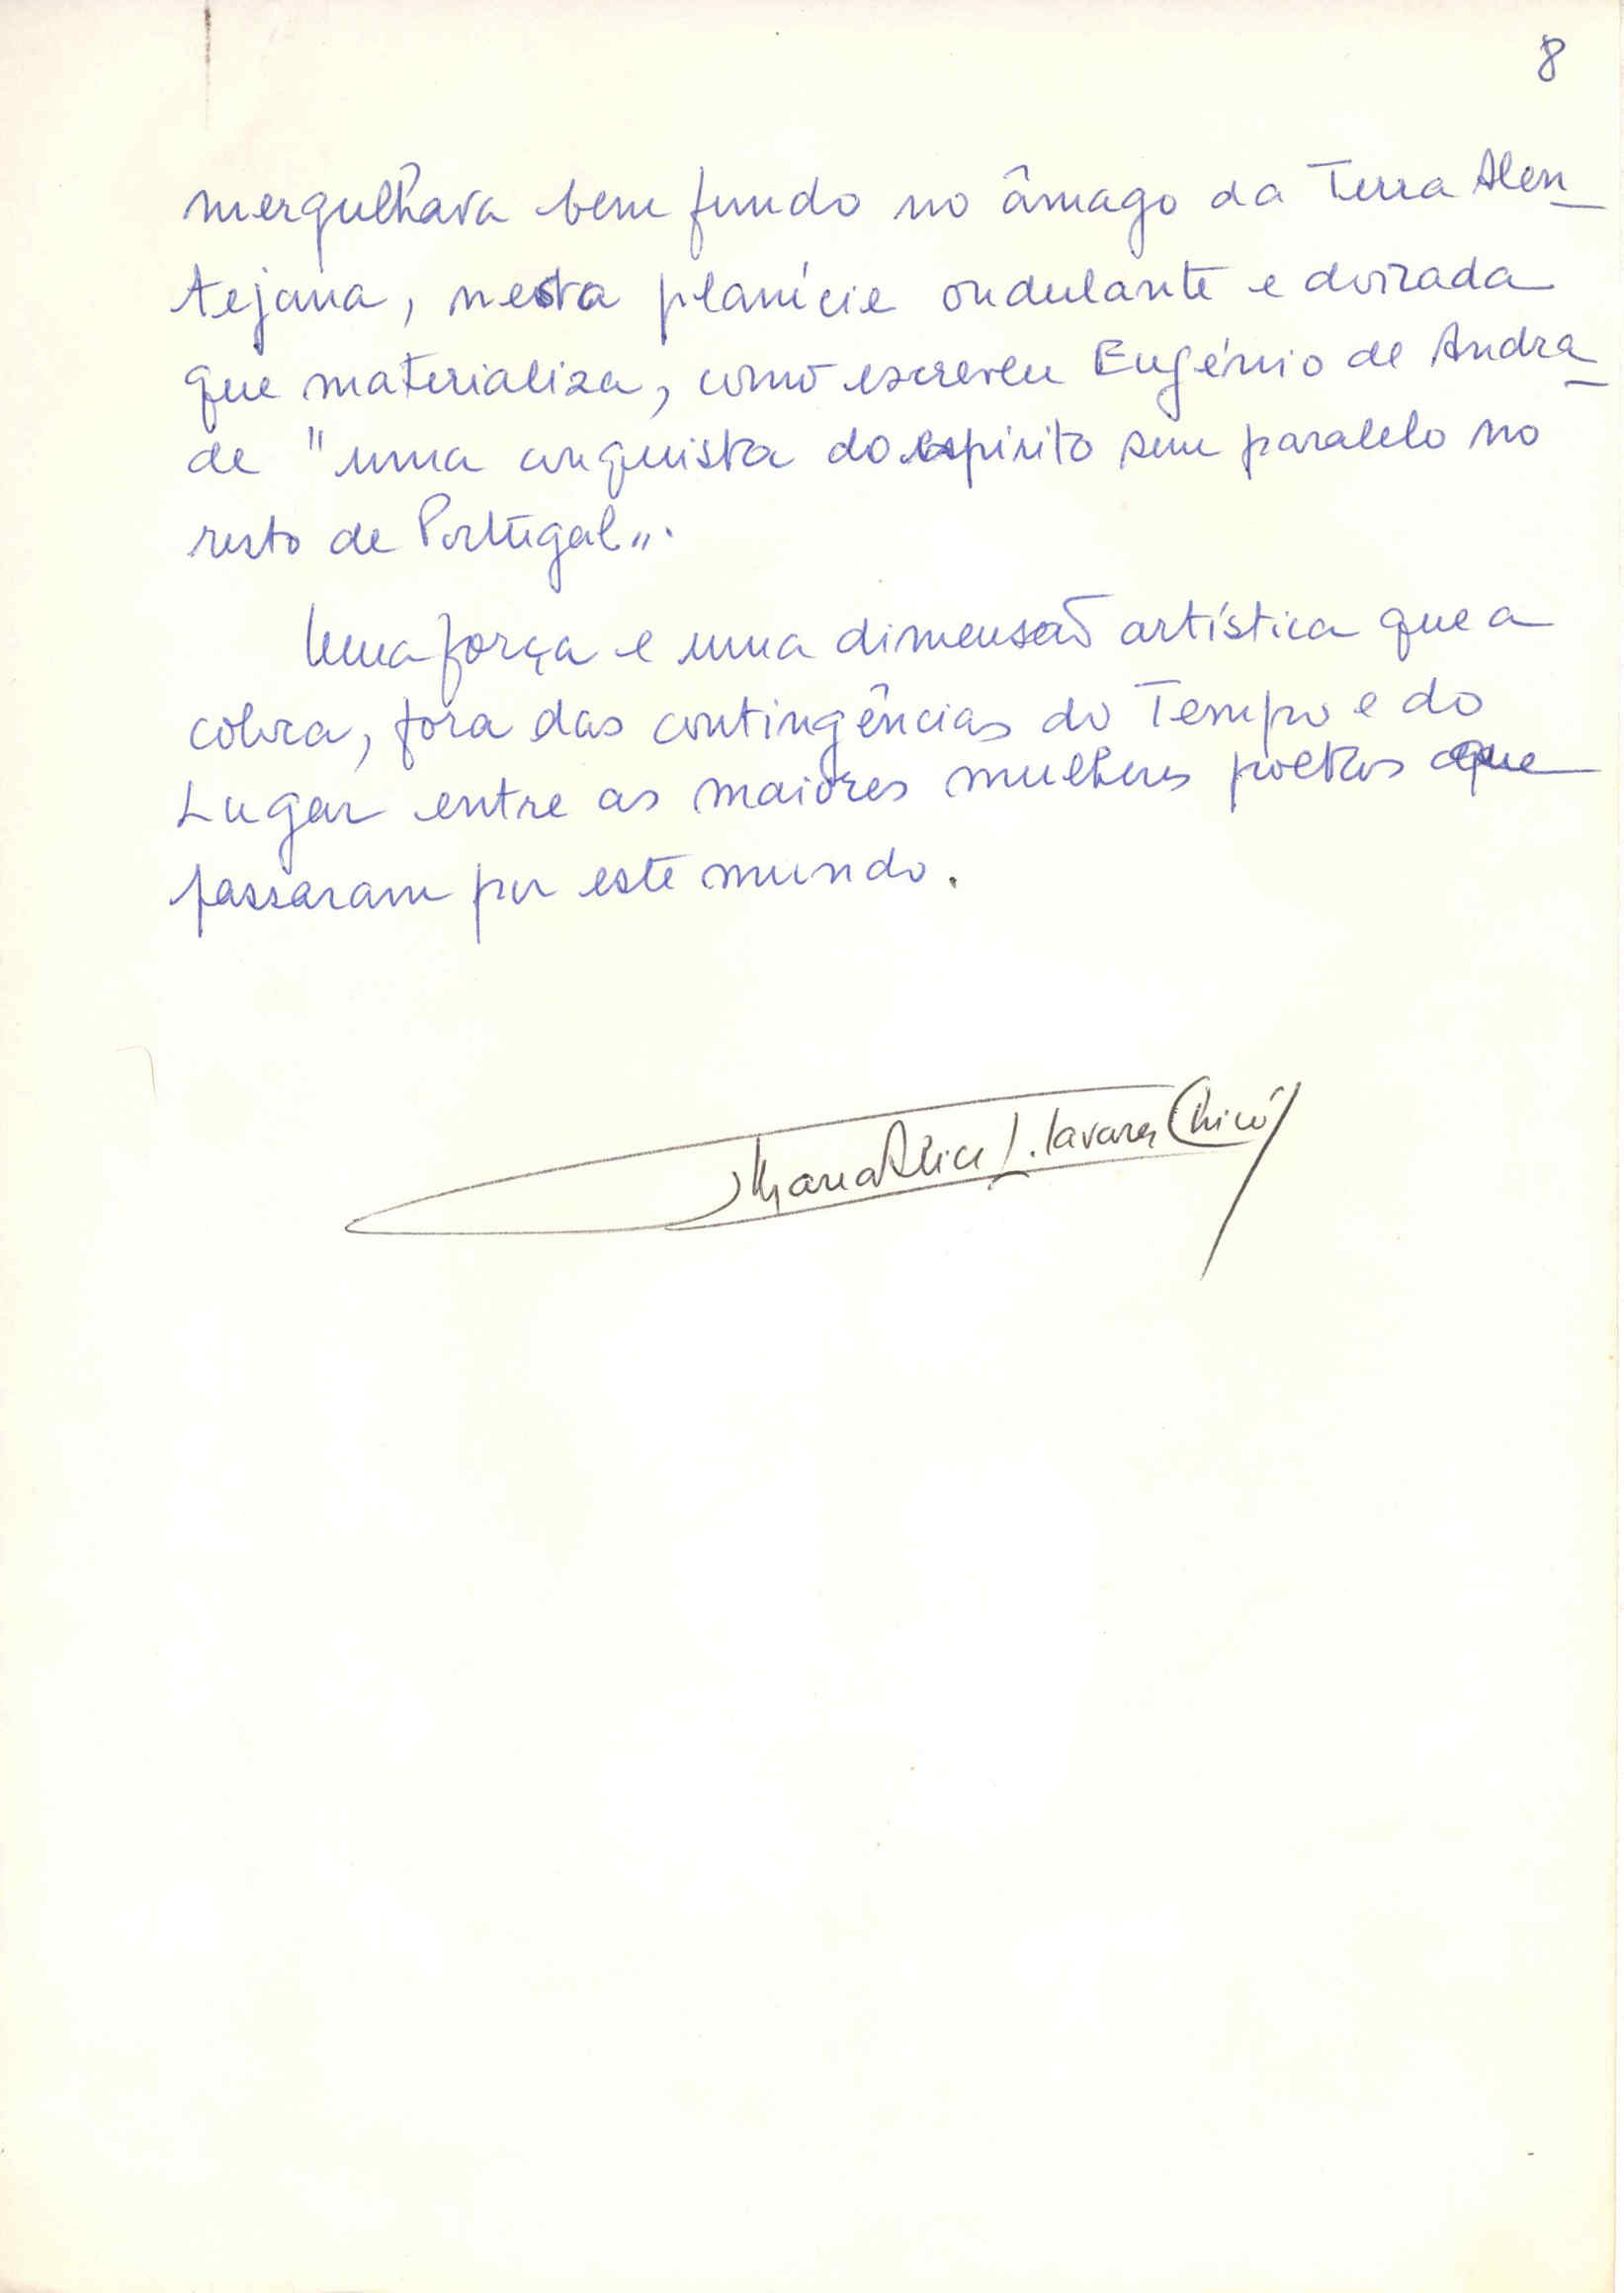 8
mergulhava bem fundo no âmago da Terra Alen_
tejana, nesta planície ondulante e doirada
que materializa, como escreveu Eugénio de Andra_
de "uma conquista do espirito sem paralelo no
resto de Portugal".
Uma força e uma dimensão artística que a
cobra, fora das contingências do Tempo e do
Lugar entre as maiores mulheres poetas que
passaram por este mundo.
Maria Alice L. Tavares Chicó